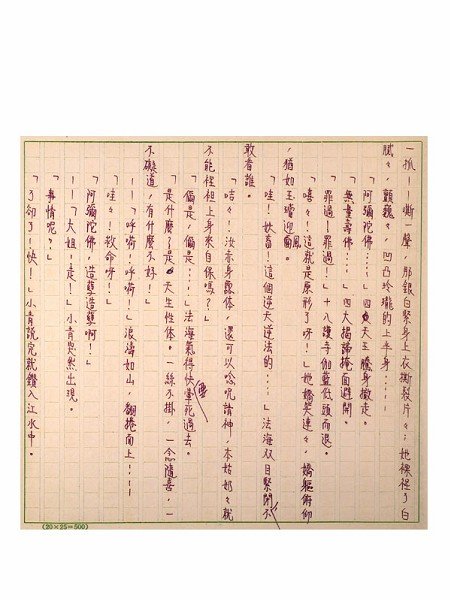 一抓——嘶一聲，那銀白緊身上衣撕裂片々；她裸裎了白
膩々，顫巍々，凹凸玲瓏的上半身……
「阿彌陀佛……」四大天王騰身撤走。
「無量壽佛……」四大揭諦掩面避開。
「罪過！罪過！」十八護寺伽藍低頭而退。
「嘻々！這就是原形了呀！」她嬌笑連々，嬌軀俯仰
，猶如玉璿迎風。
「哇！妖畜！這個逆天逆法的……」法海双目緊閉不
敢看誰。
「咭々！汝赤身露体，還可以唸呪請神，本姑奶々就
不能裎裎上身來自保嗎？」
「偏是，偏是……」法海氣得快暈死過去。
「是什麼？是天生性体。一絲不掛，一念隨喜，一
不礙道，有什麼不好！」
——「呼嗬！呼嗬！」浪濤如山，翻捲而上……
「哇々！救命呀！」
「阿彌陀佛，造孽造孽啊！」
——「大姐！走！」小青突然出現。
「事情呢？」
「了卻了！快！」小青說完就鑽入江水中。
(20×25=500)